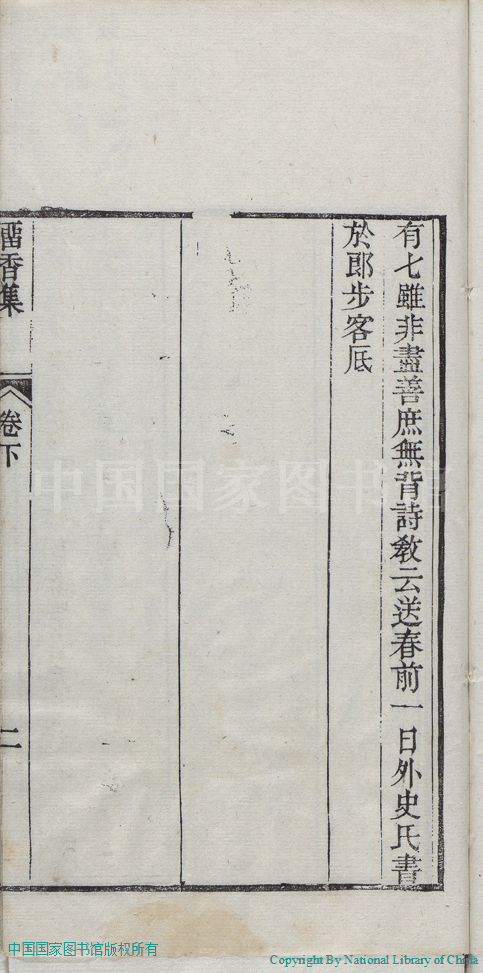 有七雖非盡善庶無背詩教云送春前一日外史氏書
於郎步客底
畱香集
卷下
二
中国国家图书馆
中国国家图书馆版权所有
Copyright By National Library of China